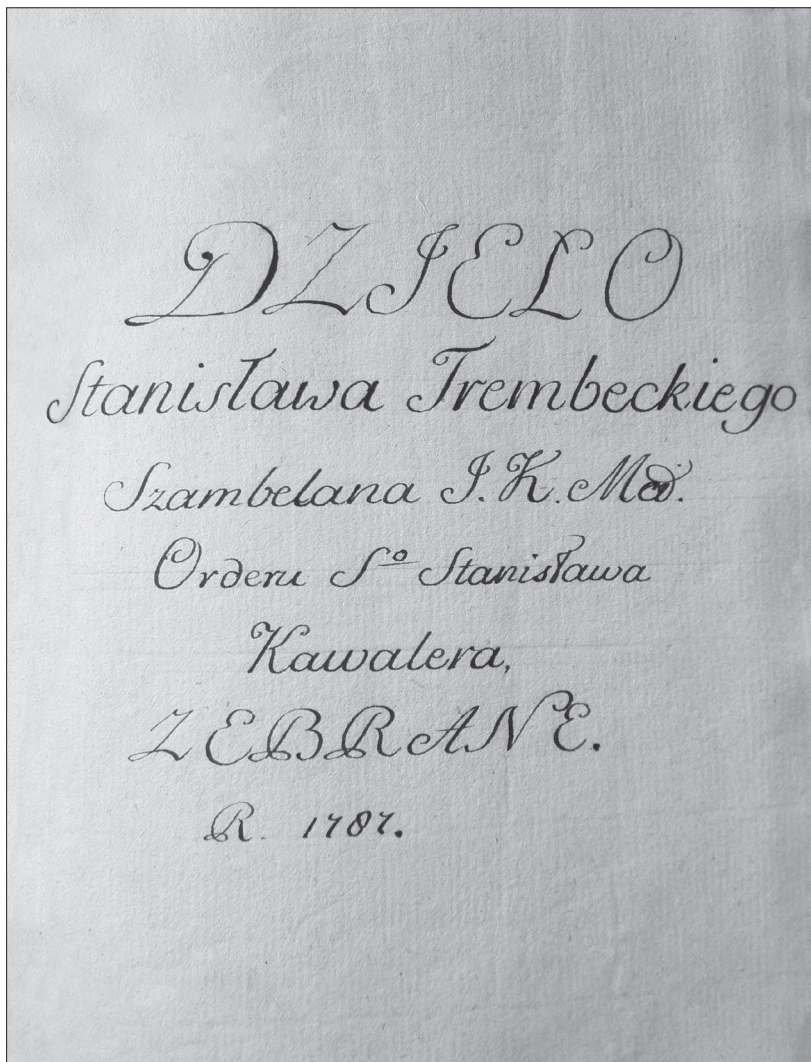 DZIEŁO
Stanisława Trembeckiego
Szambelana J. K. Mci.
Orderu Sº Stanisława
Kawalera,
ZEBRANE.
R. 1787.